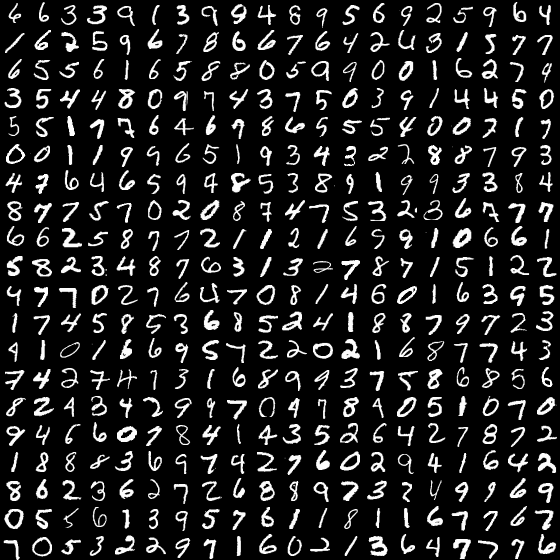 6 6 3 3 9 1 3 9 9 4 8 9 5 6 9 2 5 9 6 4
1 6 2 5 9 6 7 8 6 6 7 6 4 2 4 3 1 5 7 7
6 5 5 6 1 6 5 8 8 0 5 9 9 0 0 1 6 2 7 9
3 5 4 4 8 0 9 7 4 3 7 5 0 3 9 1 4 4 5 0
5 5 1 7 7 6 4 6 9 8 6 5 5 5 4 0 0 7 1 7
0 0 1 1 9 9 6 5 1 9 3 4 3 2 2 8 8 7 9 3
4 7 6 4 6 5 9 4 8 5 3 8 9 1 9 9 3 3 8 4
8 7 7 5 7 0 2 0 8 7 4 7 5 3 2 8 6 7 7 7
6 6 2 5 8 7 7 2 1 1 2 1 6 5 9 1 0 6 6 1
5 8 2 3 4 8 7 6 3 1 3 2 7 8 7 1 5 1 2 2
4 7 7 0 2 7 6 4 7 0 8 1 4 6 0 1 6 3 9 5
1 7 4 5 8 5 3 6 8 5 2 4 1 8 8 7 9 7 2 3
9 1 0 1 6 6 9 5 7 2 2 0 2 1 6 8 7 7 4 3
7 4 2 7 4 1 3 1 6 8 9 9 3 7 5 8 6 8 5 6
8 2 4 3 4 2 9 9 7 0 4 7 8 9 0 5 1 0 7 0
9 4 6 6 0 7 8 4 1 4 3 5 2 6 4 2 7 8 7 2
1 8 8 8 3 6 9 7 4 2 7 6 0 2 9 4 1 6 4 2
8 6 2 3 6 2 7 2 6 8 8 9 7 3 2 4 9 9 6 9
0 5 5 6 1 3 9 5 7 6 1 1 8 1 1 6 7 7 6 7
7 0 5 3 2 2 9 7 1 6 0 2 1 3 6 4 7 7 7 6